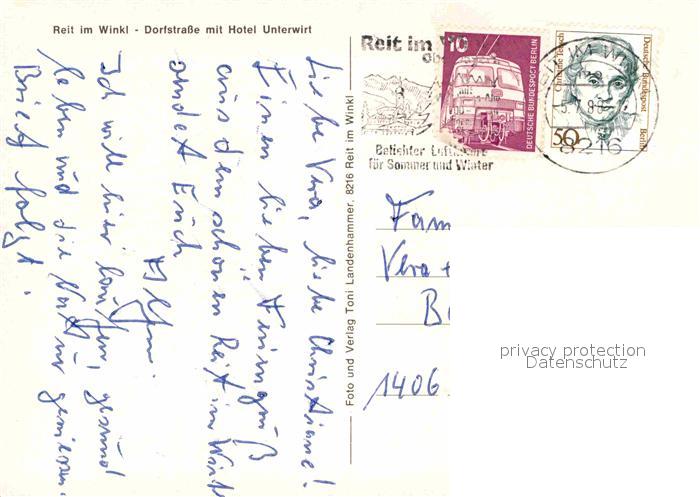 Reit im Winkl - Dorfstraße mit Hotel Unterwirt
Liebe Vera, liebe Christiane!
Einen lieben Feriengruß
aus dem schönen Reit im Winkl
sendet Euch
Ich will hier laufen, gesund
leben und die Natur geniessen.
Brief folgt.
Foto und Verlag Toni Landenhammer, 8216 Reit im Winkl
Reit im W
Ob
Beliebter Luftkurort
für Sommer und Winter
10
DEUTSCHE BUNDESPOST BERLIN
50
Christine Teusch
Deutsche Bundespost
Berlin
REIT IM WINKL
8216
Fam
Vera +
B
1406
privacy protection
Datenschutz